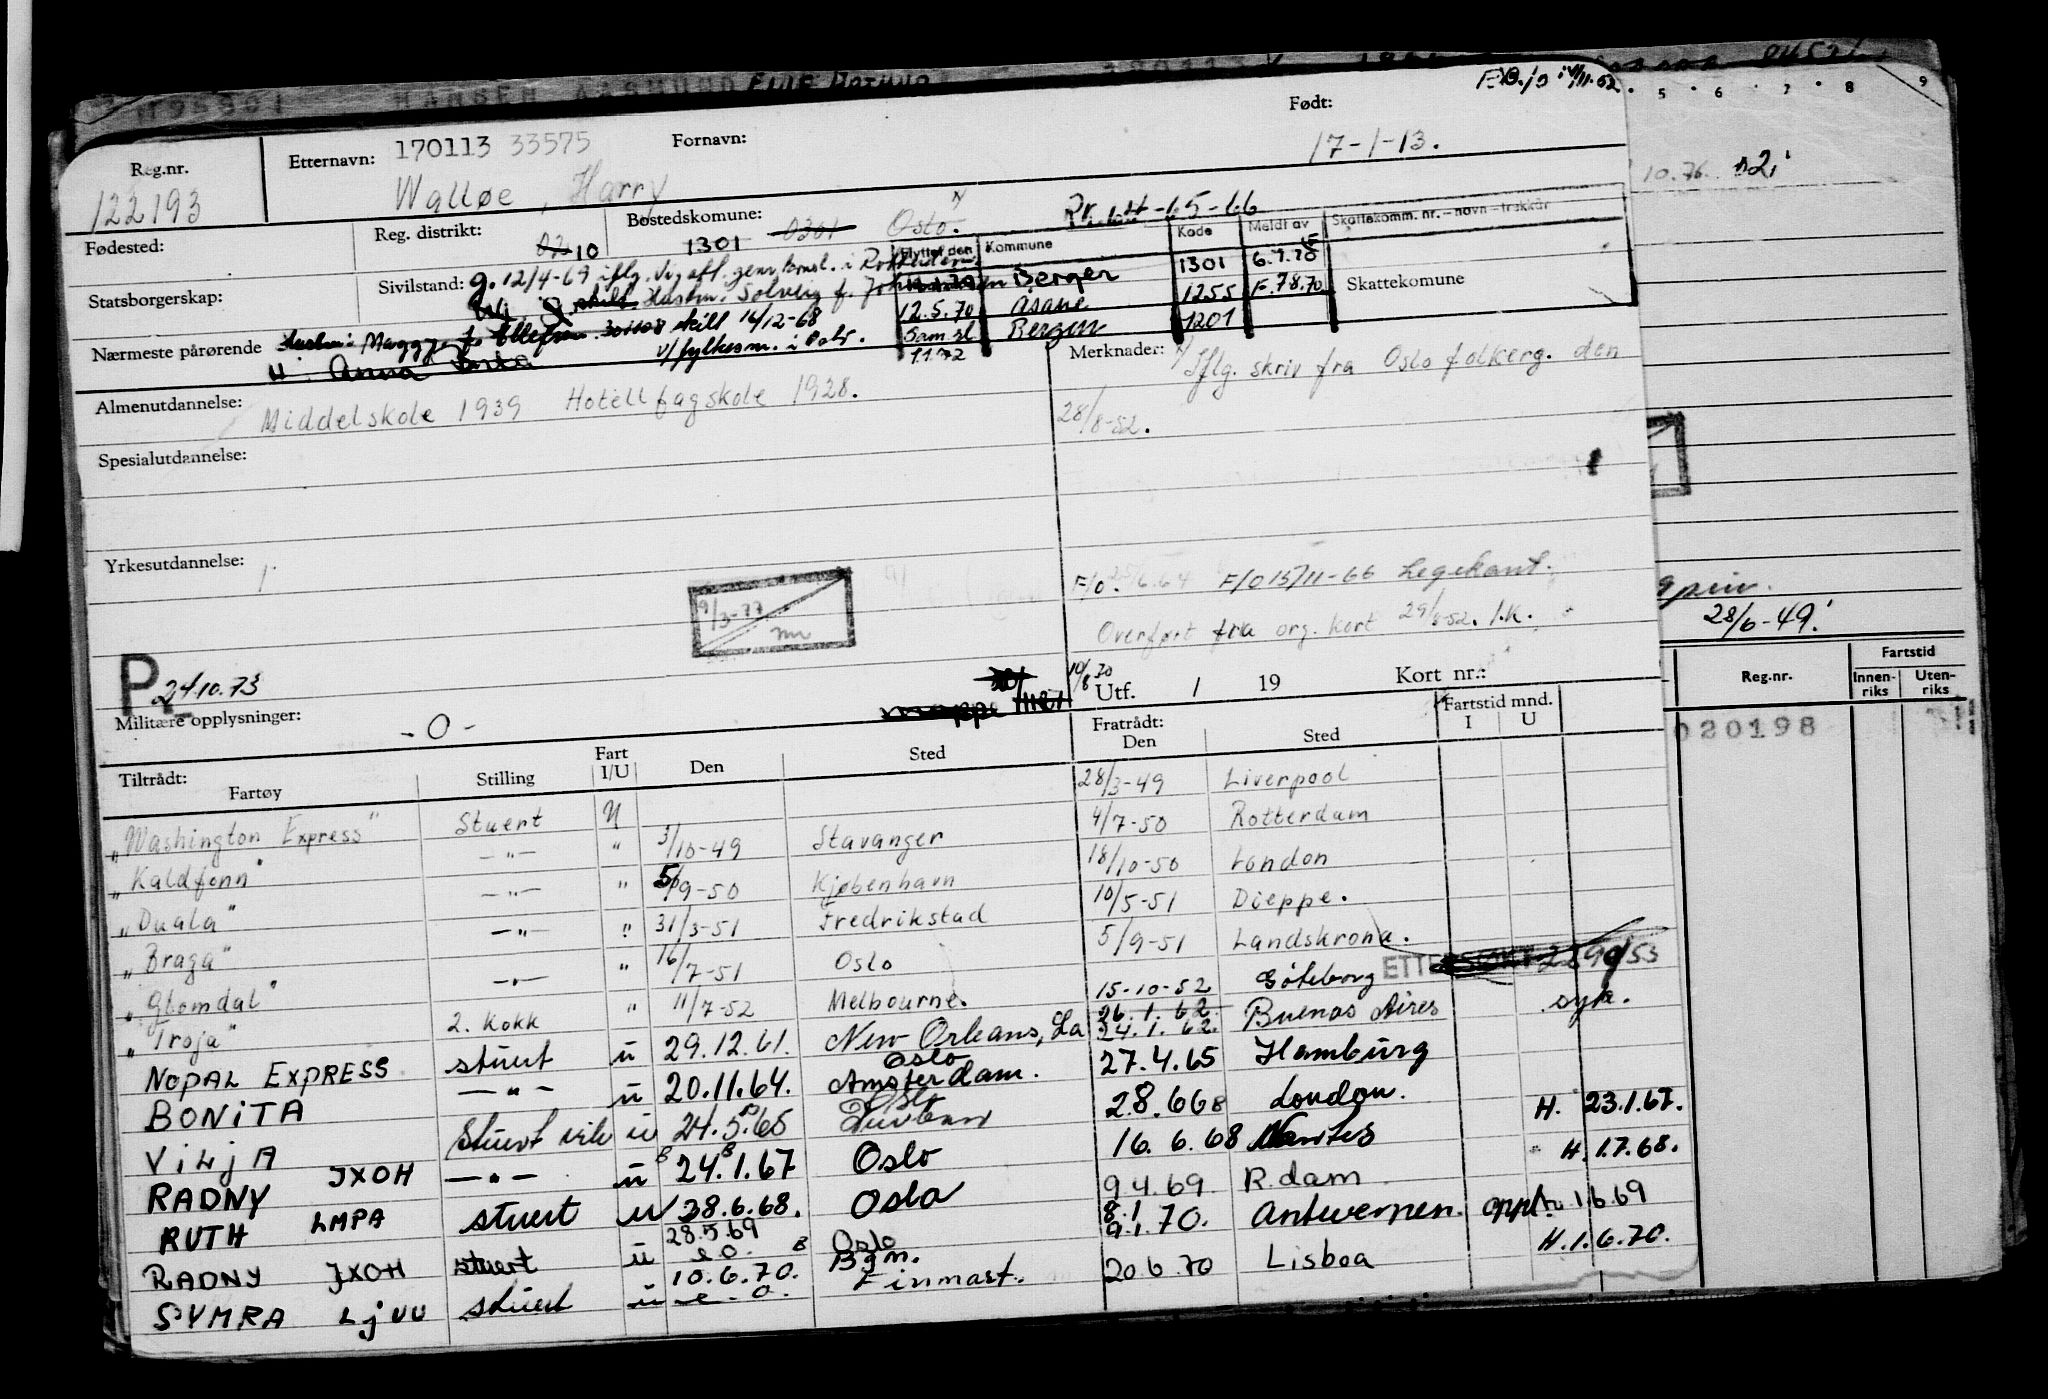 Reg.nr. 122193
Etternavn: 170113 33575 Fornavn: Født:
Walløe, Harry 17-1-13.
Fødested: Reg. distrikt: 10 Bostedskomune: 1301 0301 Oslo.
Flyttet den Kommune Kode Meldt av Skattekomm. nr. - navn - trekkår
Bergen 1301
12.5.70 Åsane 1255 F.78.70
Samsl Bergen 1201
1.1.72
Skattekomune
Statsborgerskap: Sivilstand: g. 12/4-69 iflg. vig.att. gen.konsl. i Rotterdam
skilt Hustru: Solveig f. Johannessen
Nærmeste pårørende Hustru: Maggye f. Ellefsen skilt 16/12-68
v/fylkesm. i Oslo.
Anna
Merknader: Iflg. skriv fra Oslo folkerg. den
28/8-52.
Almenutdannelse: Middelskole 1939 Hotellfagskole 1928.
Spesialutdannelse:
Yrkesutdannelse:
9/3-77
F/O 15/11-66 Legekant.
Overført fra org. kort 29/8-52. I.K.
P 24.10.73
Utf. / 19 Kort nr.:
Militære opplysninger: -0-
Tiltrådt: Fartøy Stilling Fart I/U Den Sted Fratrådt: Den Sted Fartstid mnd. I U
"Washington Express" Stuert U 28/3-49 Liverpool
"Kaldfonn" -"- " 3/10-49 Stavanger 4/7-50 Rotterdam
"Duala" -"- " 5/9-50 Kjøbenhavn 18/10-50 London
"Braga" -"- " 31/3-51 Fredrikstad 10/5-51 Dieppe.
"Glomdal" -"- " 16/7-51 Oslo 5/9-51 Landskrona.
"Troja" 2. kokk " 11/7-52 Melbourne. 15-10-52 Göteborg syk.
NOPAL EXPRESS stuert u 29.12.61. New Orleans, La 26.1.62 24.1.62. Buenos Aires
BONITA -"- u 20.11.64. Oslo Amsterdam. 27.4.65 Hamburg
VILJA Stuert u 24.5.65 28.668 London. H. 23.1.67.
RADNY JXOH -"- u 24.1.67 Oslo 16.6.68 Nantes H.1.7.68.
RUTH LMPA stuert u 28.6.68. Oslo 9.4.69 R.dam
RADNY JXOH stuert u 28.5.69 Oslo 8.1 9.1.70. Antwerpen 1.6.69
SYMRA LJVU stuert u 10.6.70. Bgn. Finmast. 20.6.70 Lisboa H.1.6.70.
28/6-49!
Reg.nr. Fartstid Innenriks Utenriks
020198